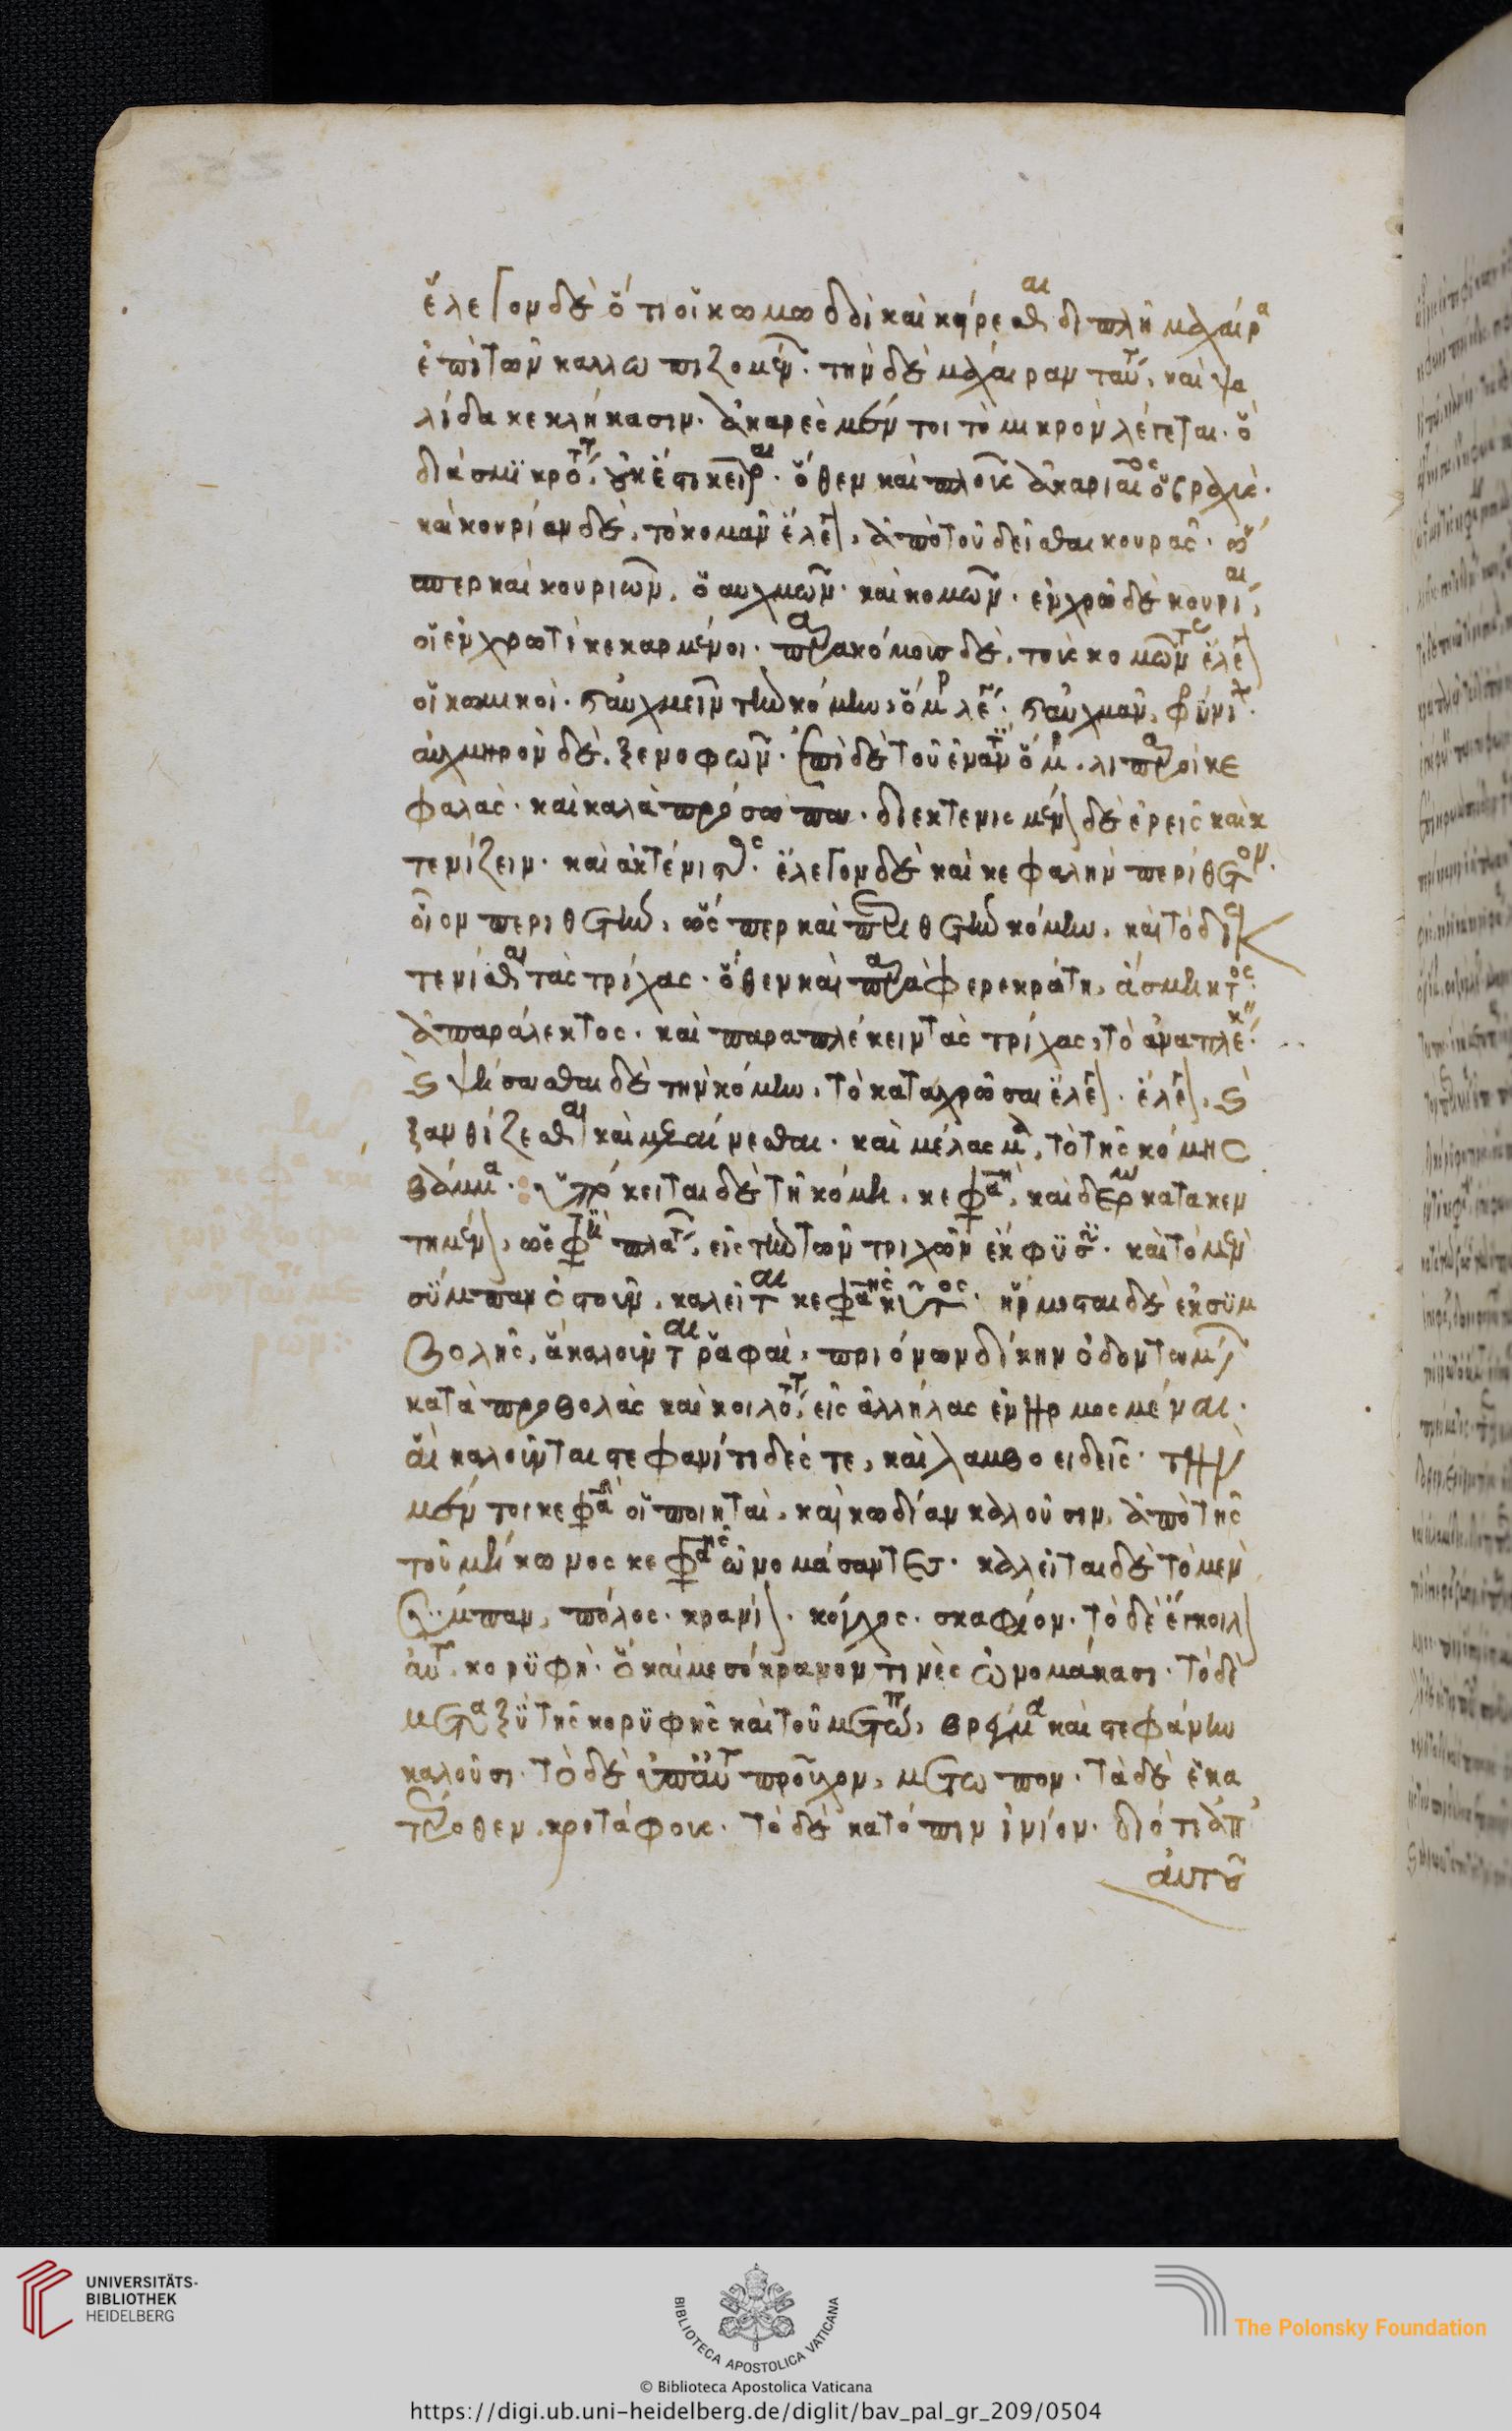 ἔλεγον δὲ ὅτι οἱ κωμωδοὶ καὶ κείρεσθαι διπλῆ μαχαίρα
ἐπὶ τῶν καλλωπιζομένων. τὴν δὲ μάχαιραν ταύτην, καὶ ψα
λίδα κεκλήκασιν. ἀκαρὲς μέν τοι τὸ μικρὸν λέγεται. ὃ
διὰ σμϊκρότητα οὐκ ἔστι κεῖραι. ὅθεν καὶ πλοῦς ἀκαριαῖος ὁ βραχύς.
καὶ κουριᾶν δὲ, τὸ κομᾶν ἔλεγον, ἀπὸ τοῦ δεῖσθαι κουρᾶς. ὥ
σπερ καὶ κουριῶν, ὁ αὐχμῶν. καὶ κομῶν. ἐν χρῶ δὲ κουρίαι,
οἱ ἐν χρωτὶ κεκαρμένοι. παρακόμους δὲ, τοὺς κομῶντας ἔλεγον
οἱ κωμικοί. καὶ αὐχμεῖν τὴν κόμην, ὅμηρος λέγει. καὶ αὐχμᾶν, φρύνιχος.
αὐχμηρὸν δὲ, ξενοφῶν. ἐπὶ δὲ τοῦ ἐναντίου ὅμηρος. λιπαροὶ κε
φαλὰς. καὶ καλὰ πρόσωπα. διεκτενισμένον δὲ ἐρεῖς καὶ κ
τενίζειν. καὶ ἀκτένιστος. ἔλεγον δὲ καὶ κεφαλὴν περίθετον.
οἷον περιθετὴν, ὥσπερ καὶ περιθετὴν κόμην. καὶ τὸ διεκ
τενίσθαι τὰς τρίχας. ὅθεν καὶ παρὰ φερεκράτη, ἄσμηκτος.
ἀπαράλεκτος. καὶ παραπλέκειν τὰς τρίχας, τὸ ἀναπλέκειν.
καὶ ψήσασθαι δὲ τὴν κόμην, τὸ καταχρῶσαι ἔλεγον. ἔλεγον, καὶ
ξανθίζεσθαι καὶ μελαίνεσθαι. καὶ μέλασμα, τὸ τῆς κόμης
βάμμα. ὑπόκειται δὲ τῆ κόμη, κεφαλὴ, καὶ δέρμα κατακεν
τημένον, ὥς φησι πλάτων, εἰς τὴν τῶν τριχῶν ἔκφϋσιν. καὶ τὸ μὲν
σύμπαν ὀστοῦν, καλεῖται κεφαλῆς κύτος. ἥρμοσται δὲ ἐκ συμ
βολῆς, ἃ καλοῦνται ῥαφαὶ, πριόνων δίκην ὀδοντωμέναι
κατὰ προβολὰς καὶ κοιλότητας εἰς ἀλλήλας ἐνηρμοσμέναι.
αἳ καλοῦνται στεφανίτιδές τε, καὶ λαμβοειδεῖς. τὴν
μέν τοι κεφαλὴν οἱ ποιηταὶ, καὶ κωδίαν καλοῦσιν, ἀπὸ τῆς
τοῦ μήκωνος κεφαλῆς ὠνομάσαντες. καλεῖται δὲ τὸ μὲν
σύμπαν, πόλος. κρανίον. κόγχος. σκαφίον. τὸ δὲ ἔγκοιλον
αὐτοῦ, κορϋφὴ. ὃ καὶ μεσόκρανόν τινὲς ὠνομάκασι. τὸ δὲ
μεταξὺ τῆς κορϋφῆς καὶ τοῦ μετώπου, βρέγμα καὶ στεφάνην
καλοῦσι. τὸ δὲ ὑπ' αὐτὸ προῦχον, μέτωπον. τὰ δὲ ἑκα
τέρωθεν, κροτάφους. τὸ δὲ κατόπιν ἰνίον. διότι ἀπ'
αὐτοῦ
UNIVERSITÄTS-
BIBLIOTHEK
HEIDELBERG
BIBLIOTECA APOSTOLICA VATICANA
The Polonsky Foundation
© Biblioteca Apostolica Vaticana
https://digi.ub.uni-heidelberg.de/diglit/bav_pal_gr_209/0504